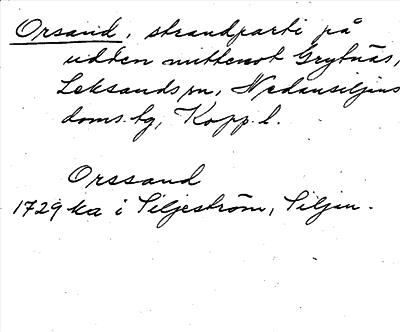 Orsand, strandparti på
udden mittemot Grytnäs,
Leksands sn, Nedansiljans
doms. hg, Kopp. l.
Orssand
1729 ka i Siljeström, Siljan.